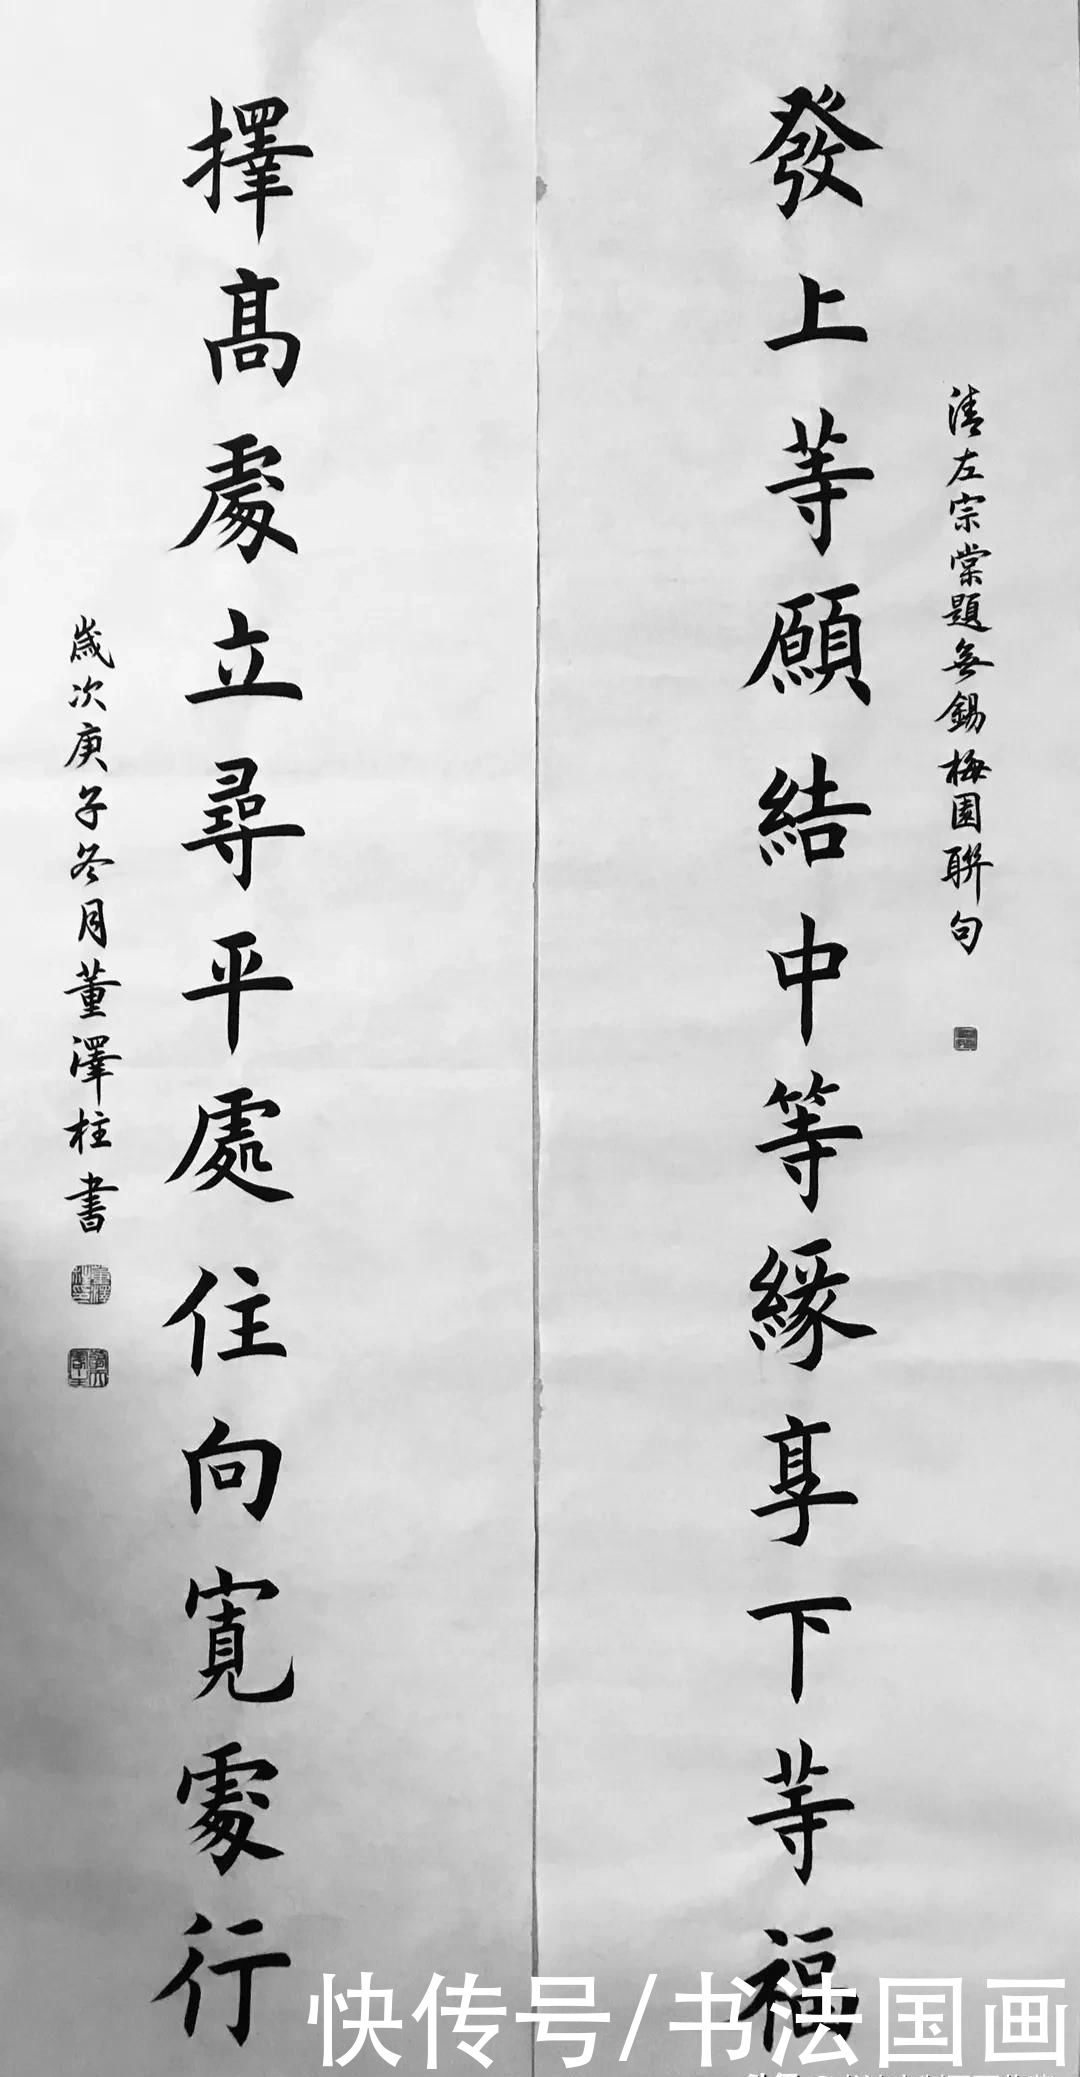 清左宗棠題無錫梅園聯句
發上等願結中等緣享下等福
擇高處立尋平處住向寬處行
歲次庚子冬月董澤柱書
快传号/书法国画